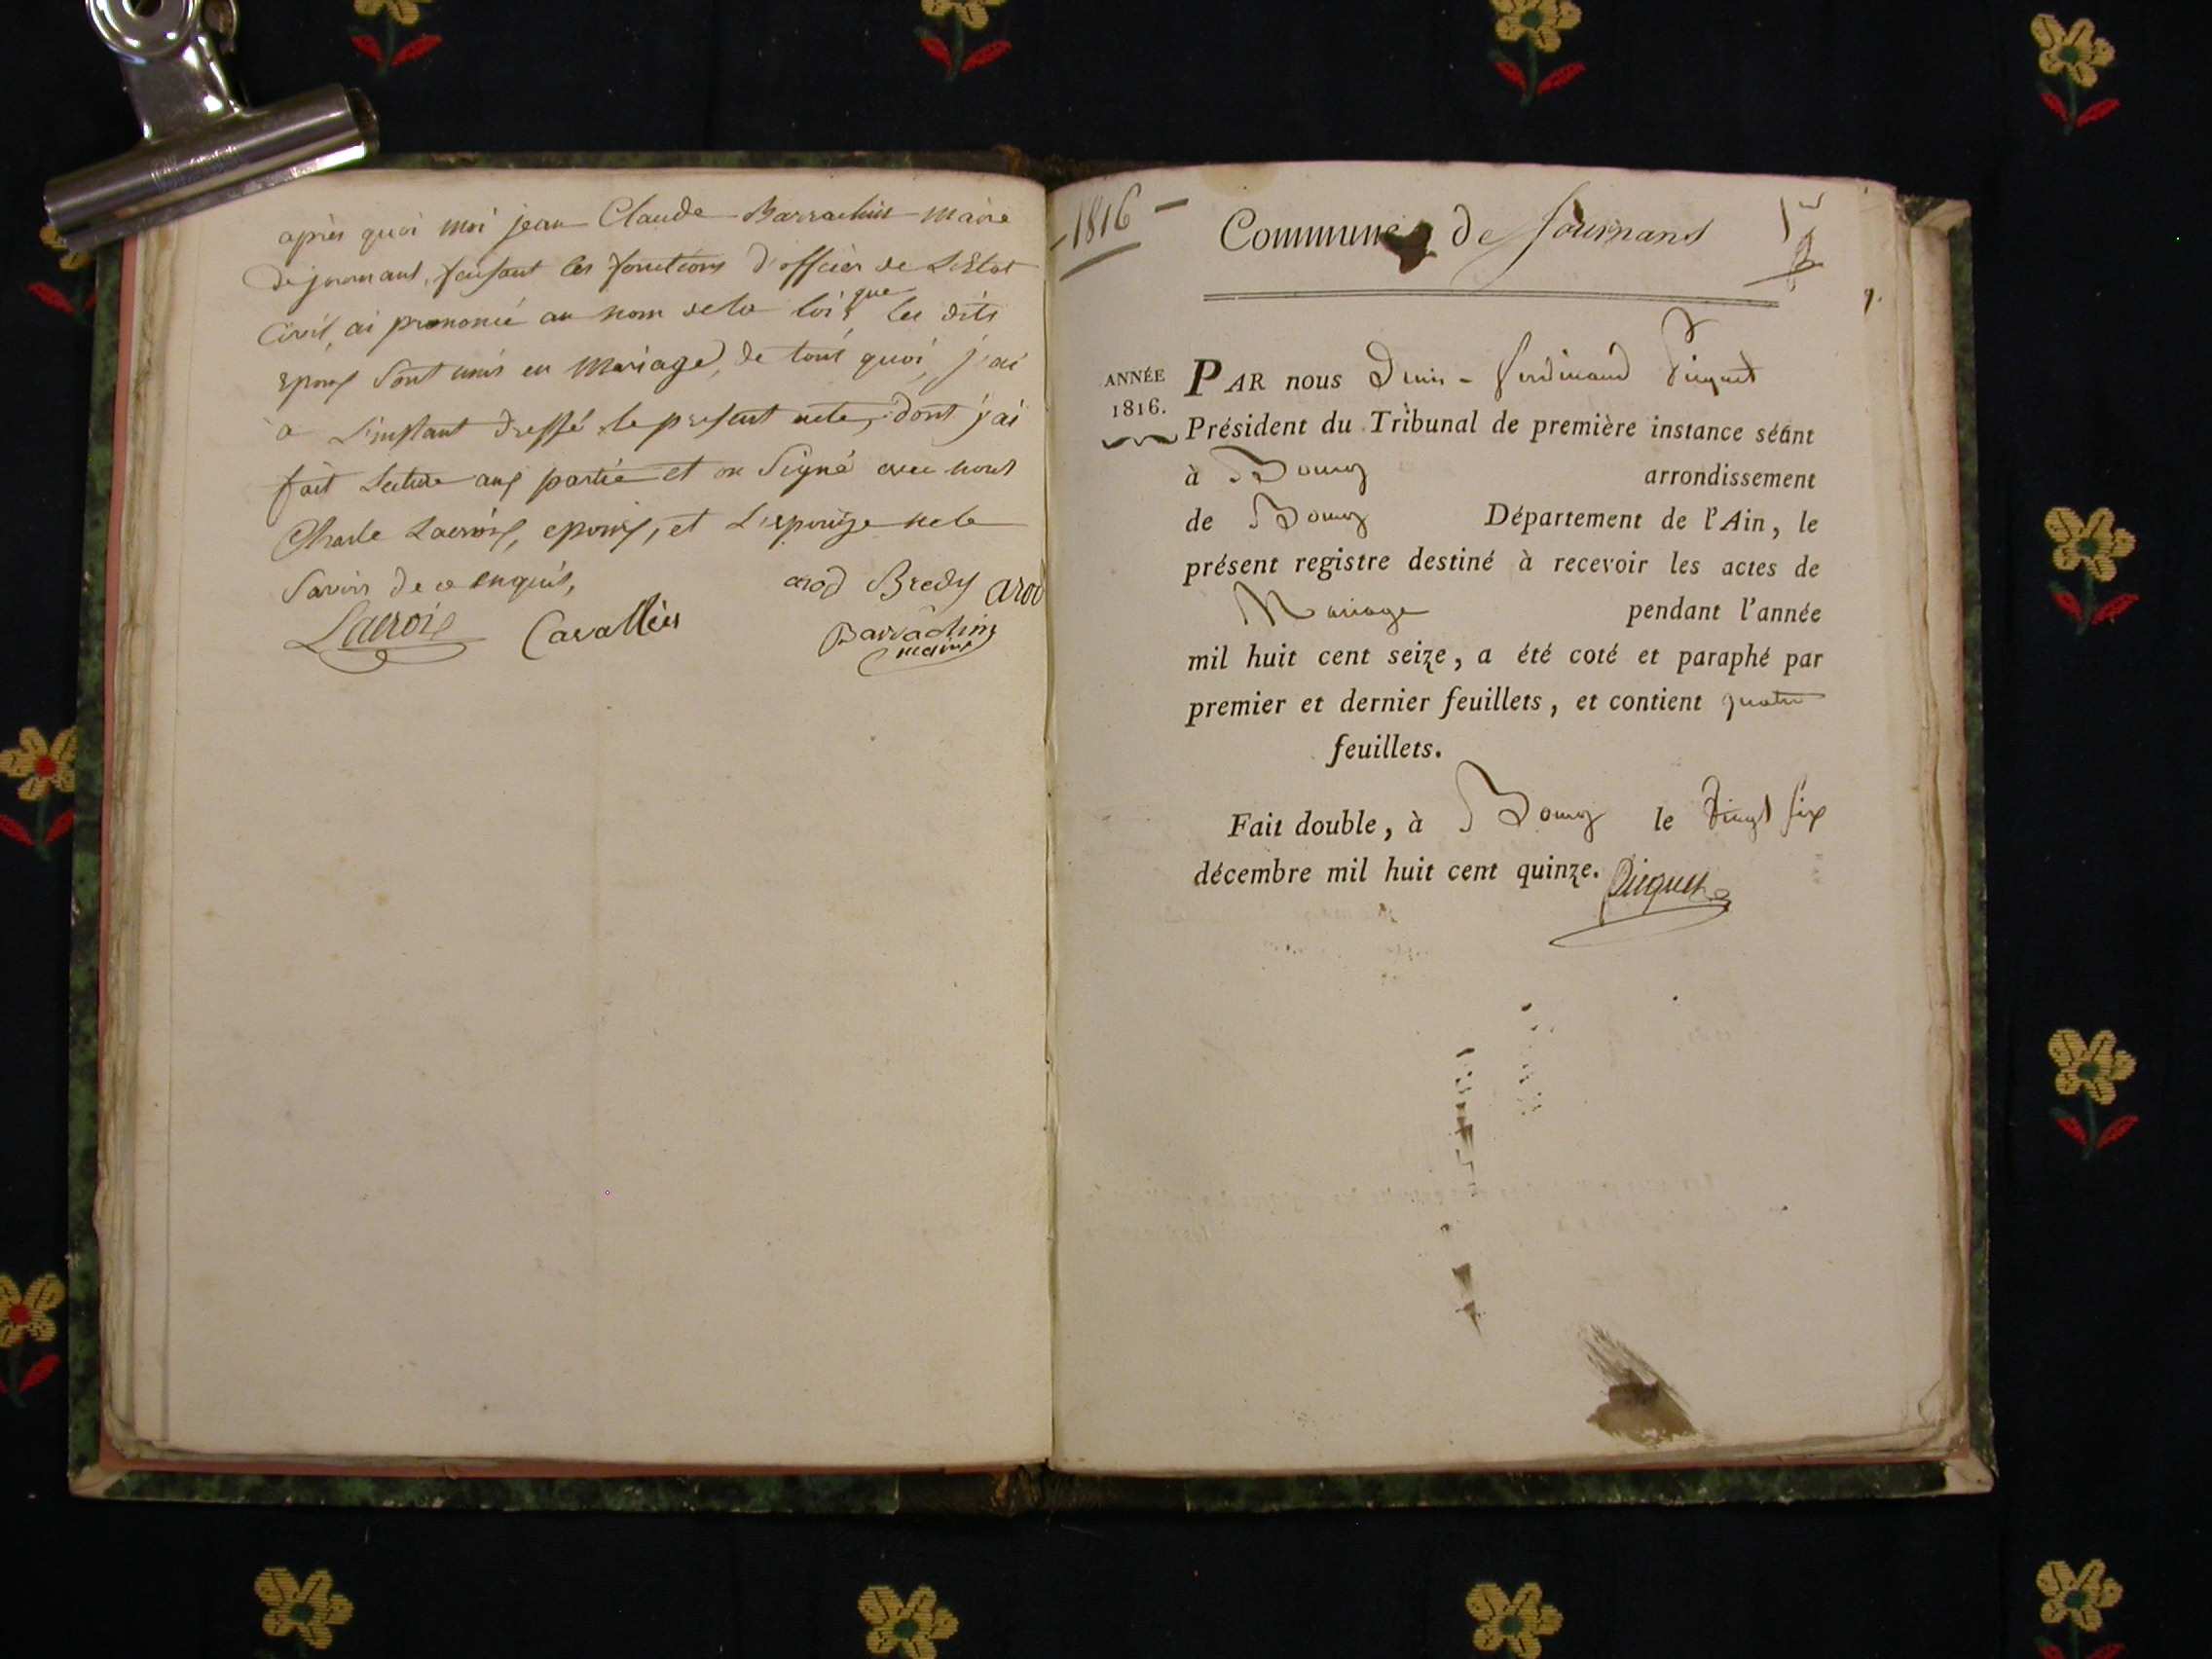 après quoi moi jean Claude Barrachin maire
de jornans, faisant les fonctions d'officier de L'Etat
Civil, ai prononcé au nom de la loi que les dits
epoux Sont unis en Mariage, de tout quoi, j'ai
a L'instant dressé le present acte, dont j'ai
fait Lecture aux partie et on Signé avec nous
Charle Lacroix, epoux, et L'epouze ne le
Savoir de ce enquis,
arod Bredy arod
Lacroix Cavallier Barrachin
maire
- 1816 -
Commune de Journans
ANNÉE
1816.
PAR nous Denis - Ferdinand Picquet
Président du Tribunal de première instance séant
à Bourg arrondissement
de Bourg Département de l'Ain, le
présent registre destiné à recevoir les actes de
Mariage pendant l'année
mil huit cent seize, a été coté et paraphé par
premier et dernier feuillets, et contient quatre
feuillets.
Fait double, à Bourg le vingt six
décembre mil huit cent quinze. Picquet